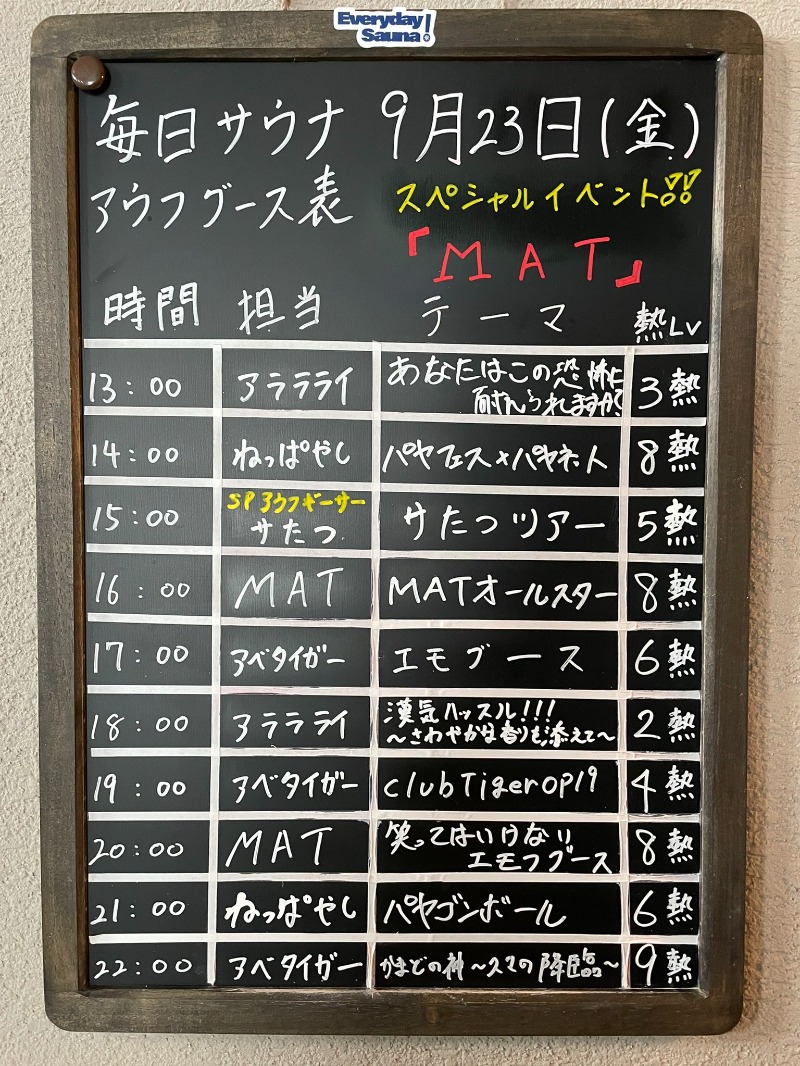 Everyday
Sauna!
毎日サウナ 9月23日(金)
アウフグース表 スペシャルイベント!!
「MAT」
時間 担当 テーマ 熱Lv
13:00 アラララライ あなたはこの恐怖に
耐えられますか? 3熱
14:00 ねっぱやし パヤフェス×パヤネット 8熱
15:00 SPアウフギーサー
サたつ サたつツアー 5熱
16:00 MAT MATオールスター 8熱
17:00 アベタイガー エモグース 6熱
18:00 アララライ 漢気ハッスル!!!
〜さわやかな香りを添えて〜 2熱
19:00 アベタイガー clubTigerop19 4熱
20:00 MAT 笑ってはいけない
エモフグース 8熱
21:00 ねっぱやし パヤゴンボール 6熱
22:00 アベタイガー かまどの神〜スマの降臨〜 9熱